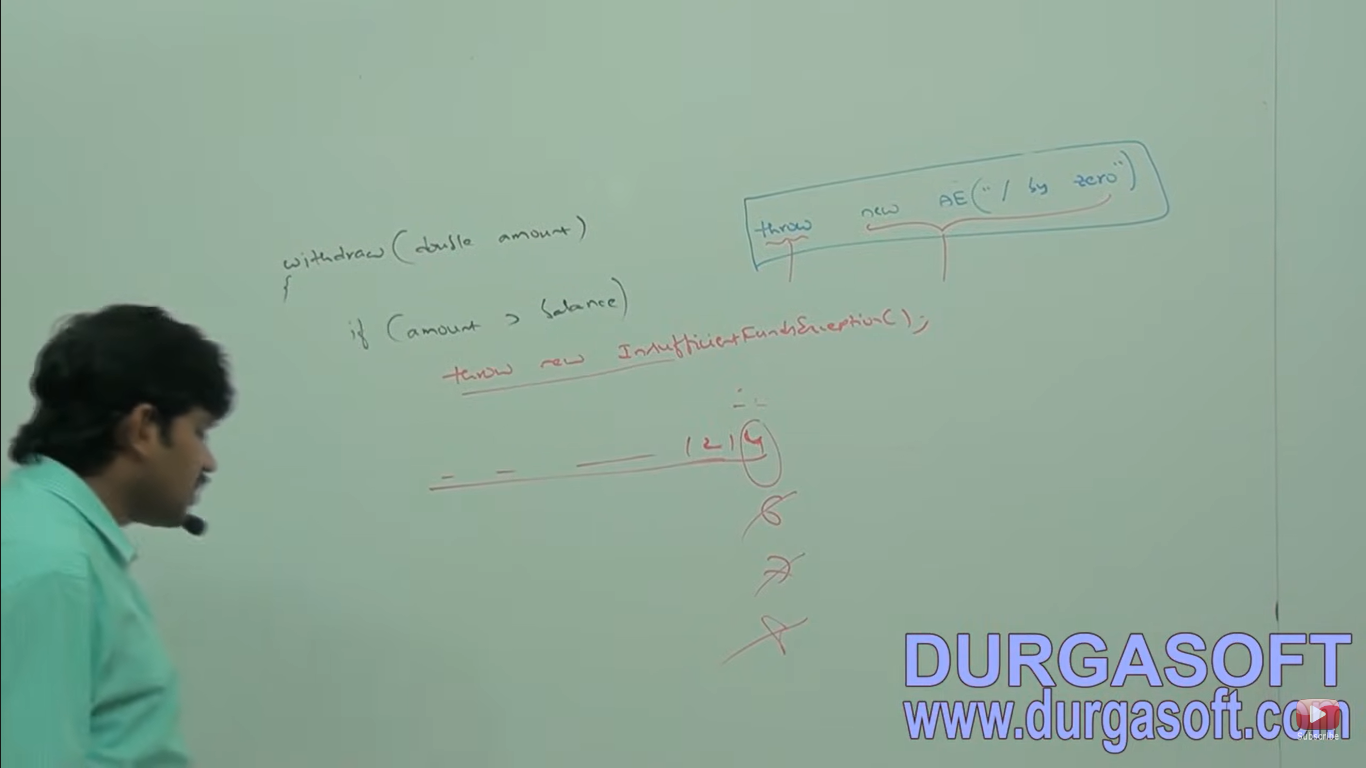 throw new AE("/ by zero")
withdraw(double amount)
{
if (amount > balance)
throw new InsufficientFundsException();
1214
6
7
DURGASOFT
www.durgasoft.com
Subscribe